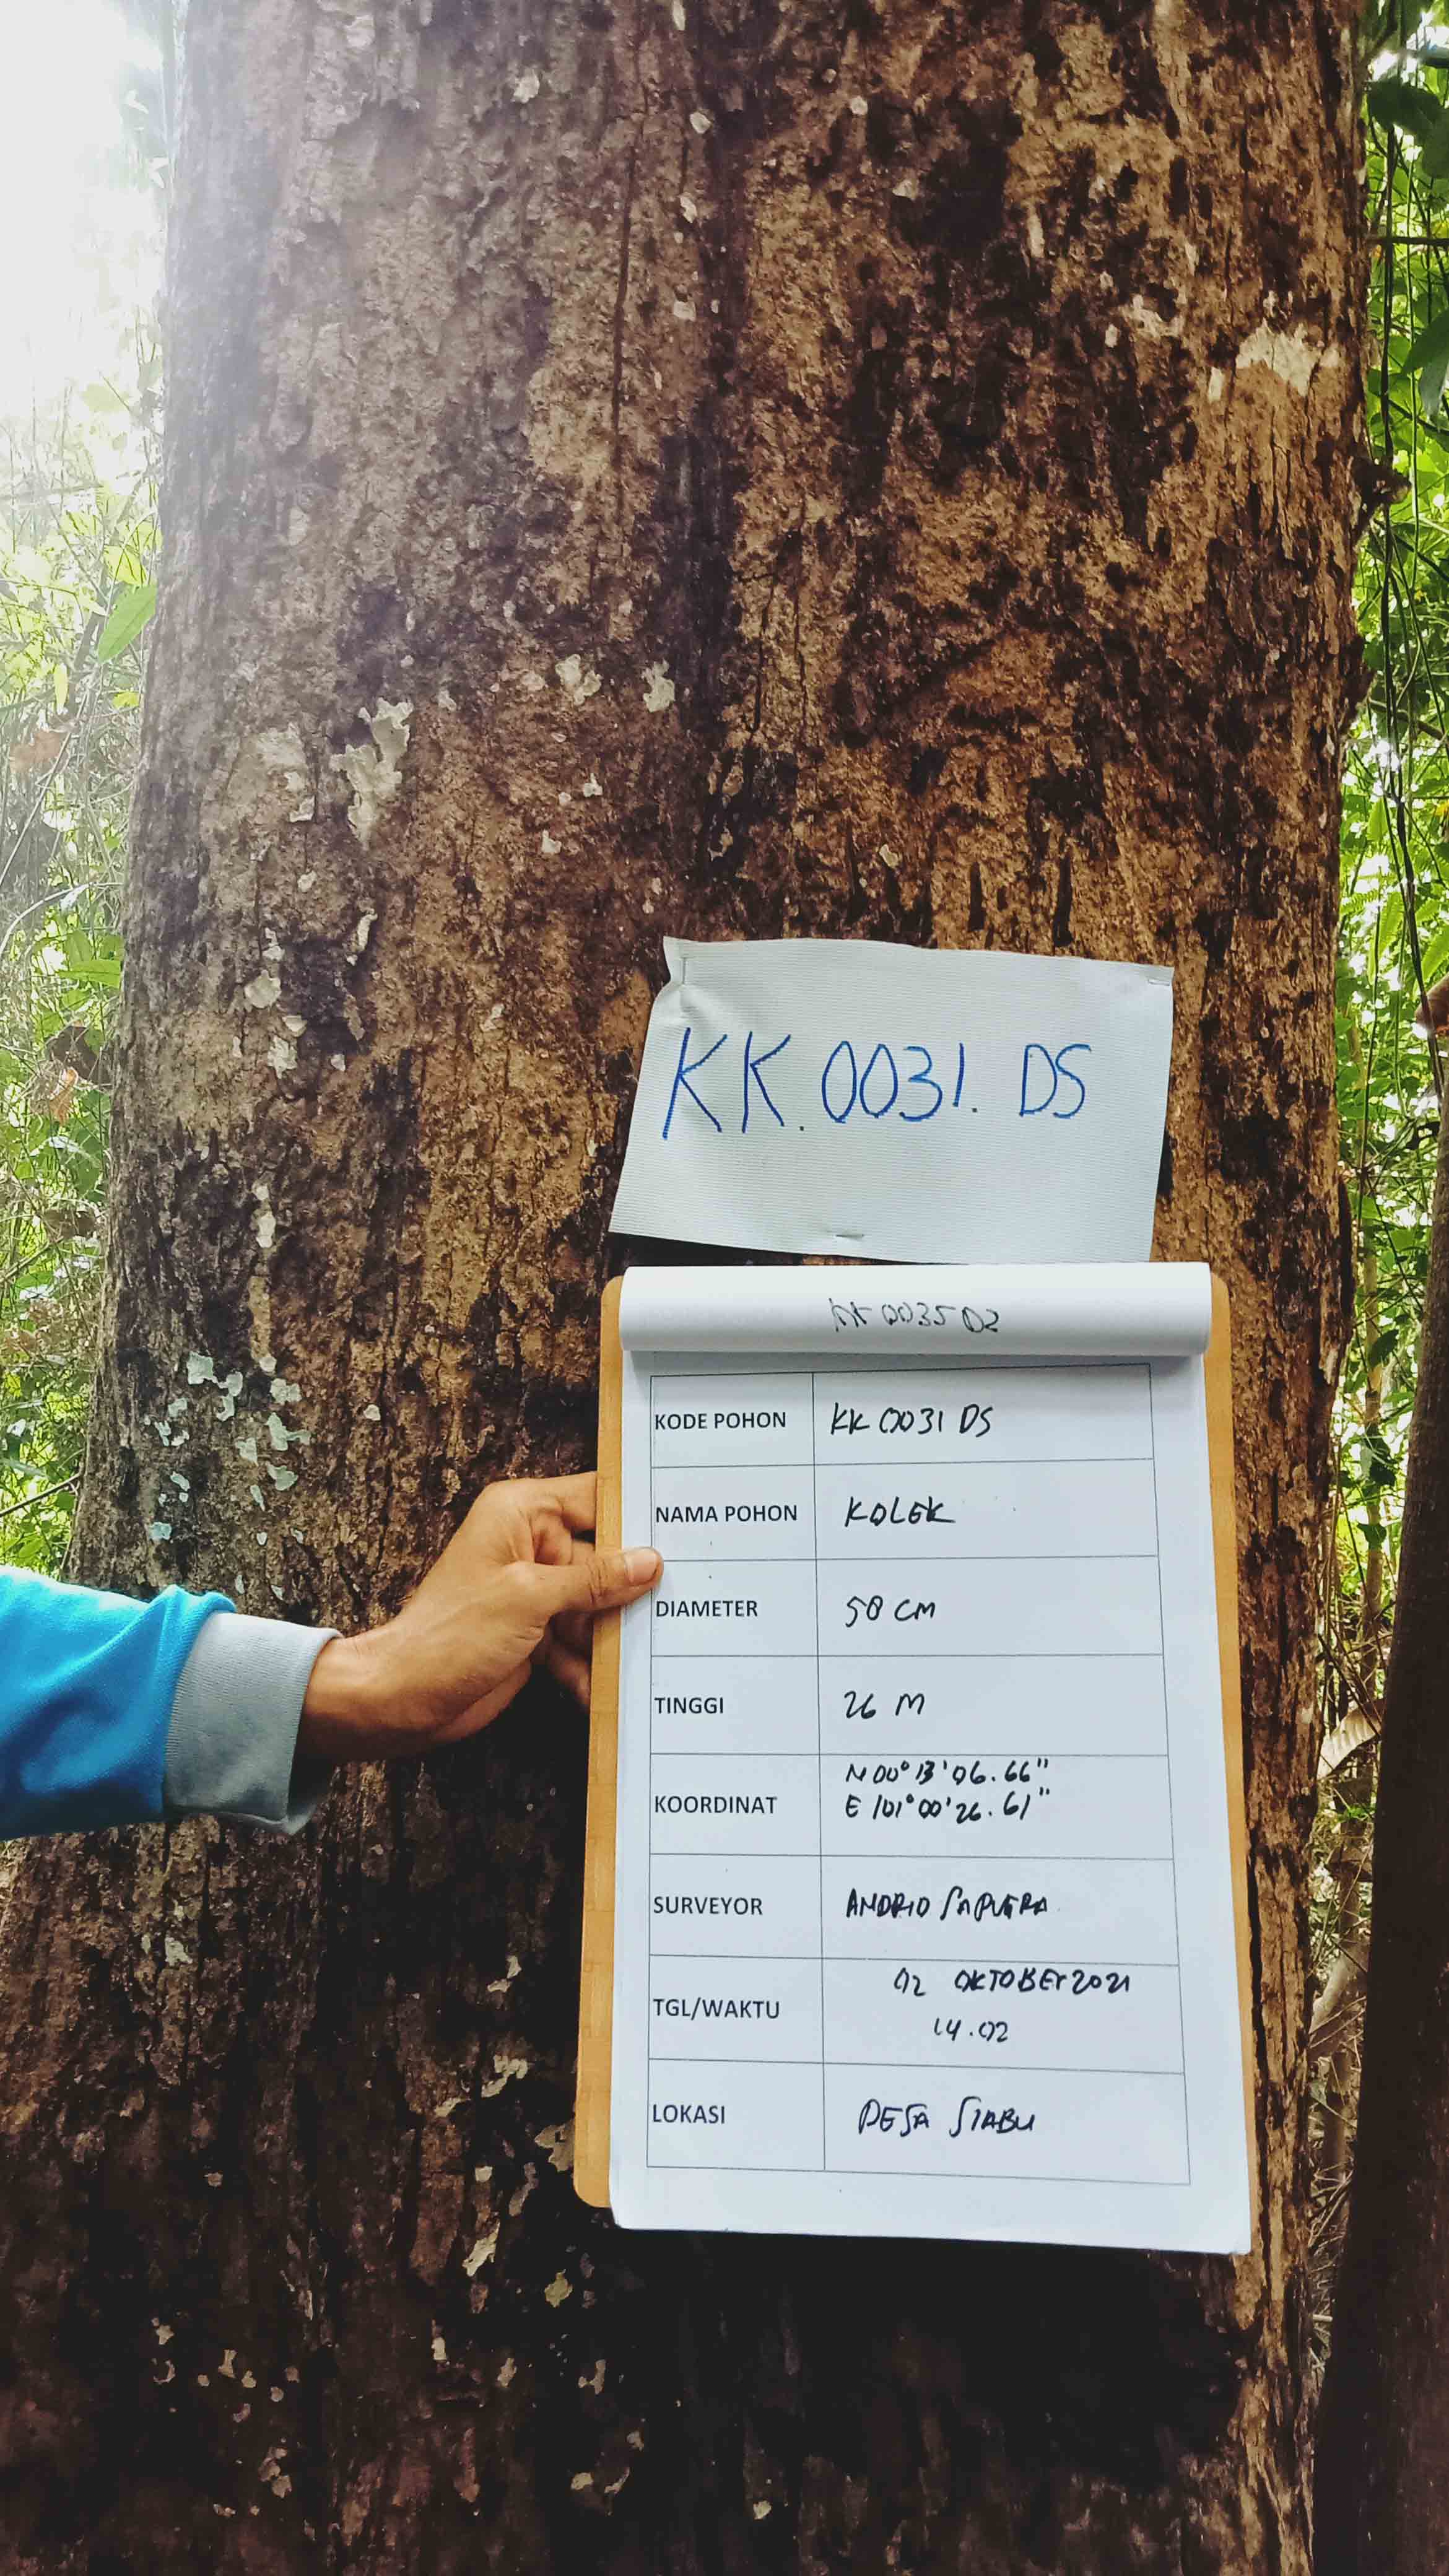 KK.0031.DS
KK 0035 DS
KODE POHON KK 0031 DS
NAMA POHON KOLEK
DIAMETER 58 CM
TINGGI 26 M
KOORDINAT N 00° 13' 06.66"
E 101° 00' 26.61"
SURVEYOR ANDRIO SAPUTRA
TGL/WAKTU 02 OKTOBER 2021
14.02
LOKASI DESA SIABU